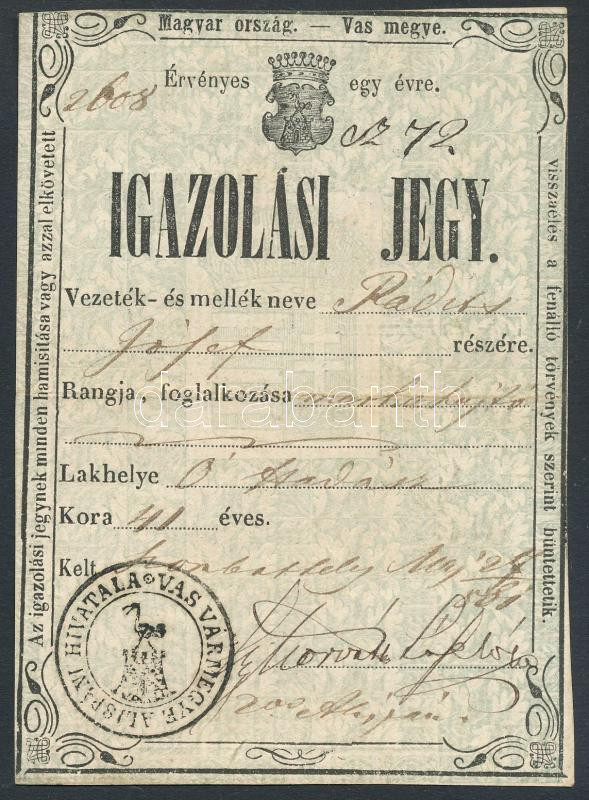 Magyar ország. — Vas megye.
2608 Érvényes egy évre.
72.
IGAZOLÁSI JEGY.
Vezeték- és mellék neve Rádits
Jósef részére.
Rangja, foglalkozása
Lakhelye Ó
Kora 41 éves.
Kelt Szombathely
Horváth
VAS VÁRMEGYE ALISPÁNI HIVATALA
Az igazolási jegynek minden hamisitása vagy azzal elkövetett
visszaélés a fenálló törvények szerint büntettetik.
darabanth